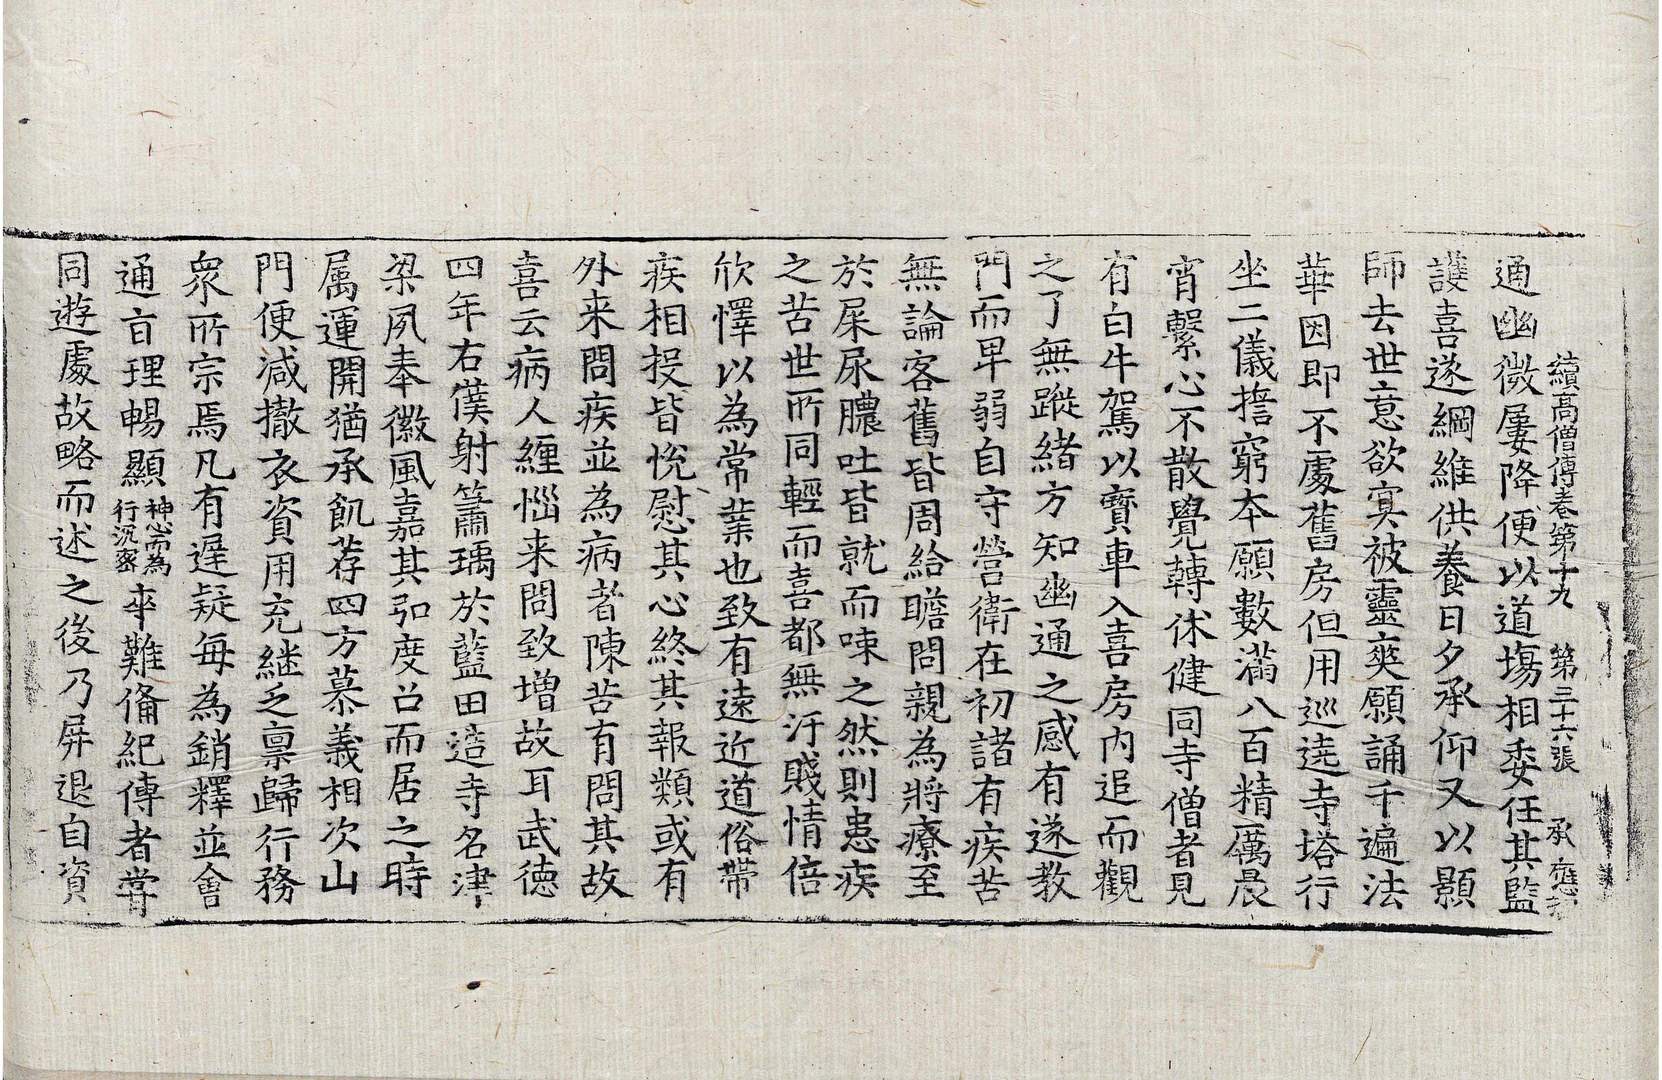 續高僧傳卷第十九　第三十六張　承
通幽微屢降便以道場相委任其監
護喜遂綱維供養日夕承仰又以顯
師去世意欲冥被靈爽願誦千遍法
華因即不處舊房但用巡遶寺塔行
坐二儀擔窮本願數滿八百精厲晨
宵繫心不散覺轉休健同寺僧者見
有白牛駕以寶車入喜房內追而觀
之了無蹤緒方知幽通之感有遂教
門而卑弱自守營衛在初諸有疾苦
無論客舊皆周給瞻問親為將療至
於屎尿膿吐皆就而𠲿之然則患疾
之苦世所同輕而喜都無汙賤情倍
欣懌以為常業也致有遠近道俗帶
疾相投皆悅慰其心終其報類或有
外来問疾並為病者陳苦有問其故
喜云病人纏惱来問致增故耳武德
四年右僕射簫瑀於藍田造寺名津
梁夙奉徽風嘉其弘度召而居之時
属運開猶承飢荐四方慕義相次山
門便減撤衣資用充継乏禀歸行務
衆所宗焉凡有遅疑每為銷釋並會
通旨理暢顯神心而為行沉密卒難俻紀傳者甞
同遊處故略而述之後乃屏退自資